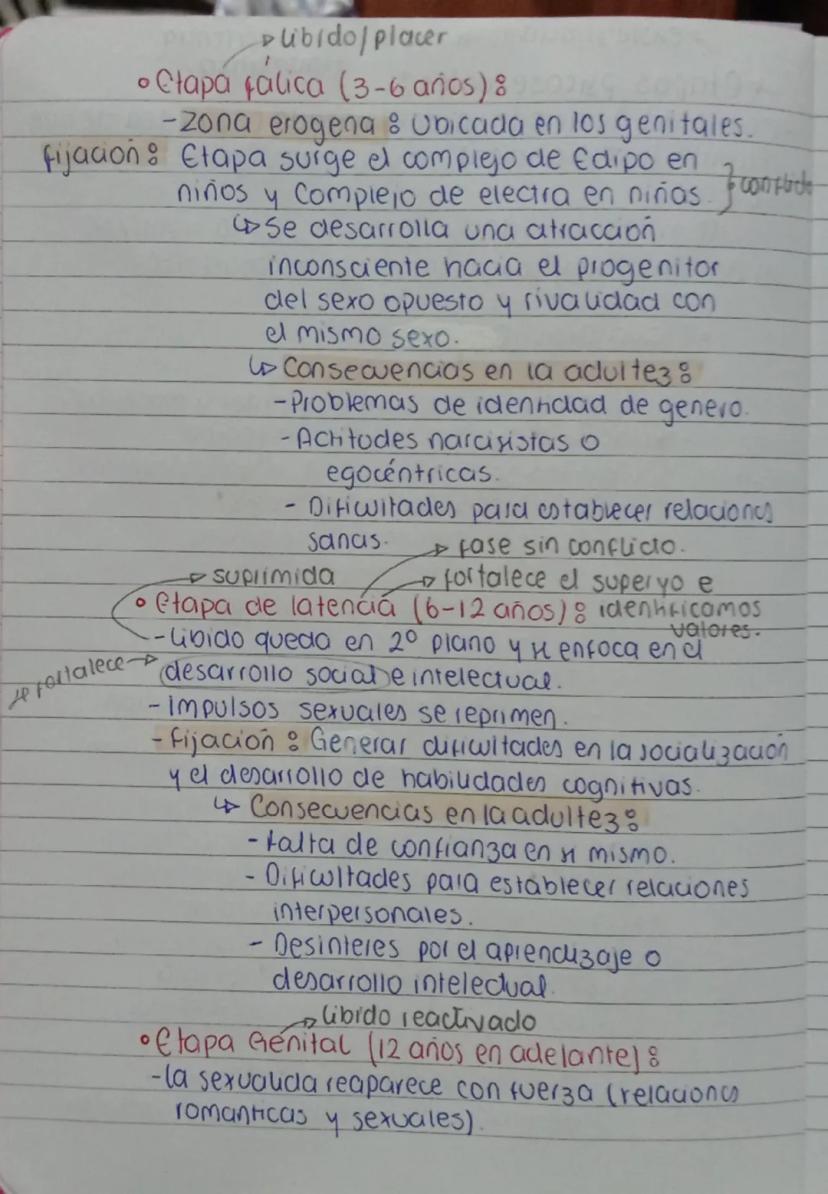 → libido/placer
• Etapa fálica (3-6 años):
- Zona erogena: Ubicada en los genitales.
fijación: Etapa surge el complejo de Edipo en
niños y Complejo de electra en niñas. } conflicto
↳ Se desarrolla una atracción
inconsciente hacia el progenitor
del sexo opuesto y rivalidad con
el mismo sexo.
↳ Consecuencias en la adultez:
- Problemas de identidad de genero.
- Actitudes narcisistas o
egocéntricas.
- Dificultades para establecer relaciones
sanas.
→ fase sin conflicto.
→ suprimida → fortalece el superyo e
• Etapa de latencia (6-12 años): identificamos
valores.
- Libido queda en 2º plano y se enfoca en el
se fortalece → desarrollo social e intelectual.
- Impulsos sexuales se reprimen.
- fijación: Generar dificultades en la socialización
y el desarrollo de habilidades cognitivas.
↳ Consecuencias en la adultez:
- falta de confianza en si mismo.
- Dificultades para establecer relaciones
interpersonales.
- Desinteres por el aprendizaje o
desarrollo intelectual.
→ libido reactivado
• Etapa Genital (12 años en adelante):
- la sexualida reaparece con fuerza (relaciones
romanticas y sexuales).